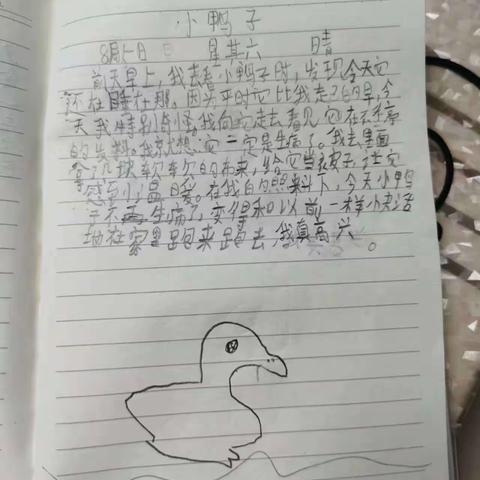 小鸭子
8月一日 星其六 晴
前天早上,我去看小鸭子时,发现今天它
还在睡在那。因为平时它比我走了的早,今
天我特别奇怪,我向它走去,看见它在不停
的发抖。我就想:它一定是生病了。我去里面
拿了块软软的布来,给它当被子,让它
感到了温暖。在我的照料下,今天小鸭
子不再生病了,变得和以前一样小夫活
地在家里跑来跑去,我真高兴。